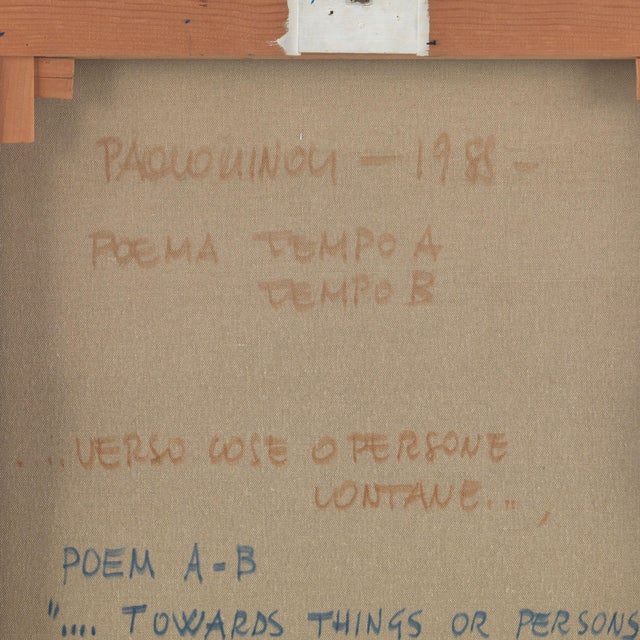 PAOLO MINOLI — 1988 -
POEMA TEMPO A
TEMPO B
....VERSO COSE O PERSONE
LONTANE... ,
POEM A-B
".... TOWARDS THINGS OR PERSONS